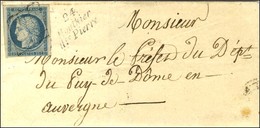 Monsieur
24
Mouthier
Hte Pierre
Monsieur le Préfet du Dépt
du Puy de Dôme en
auvergne